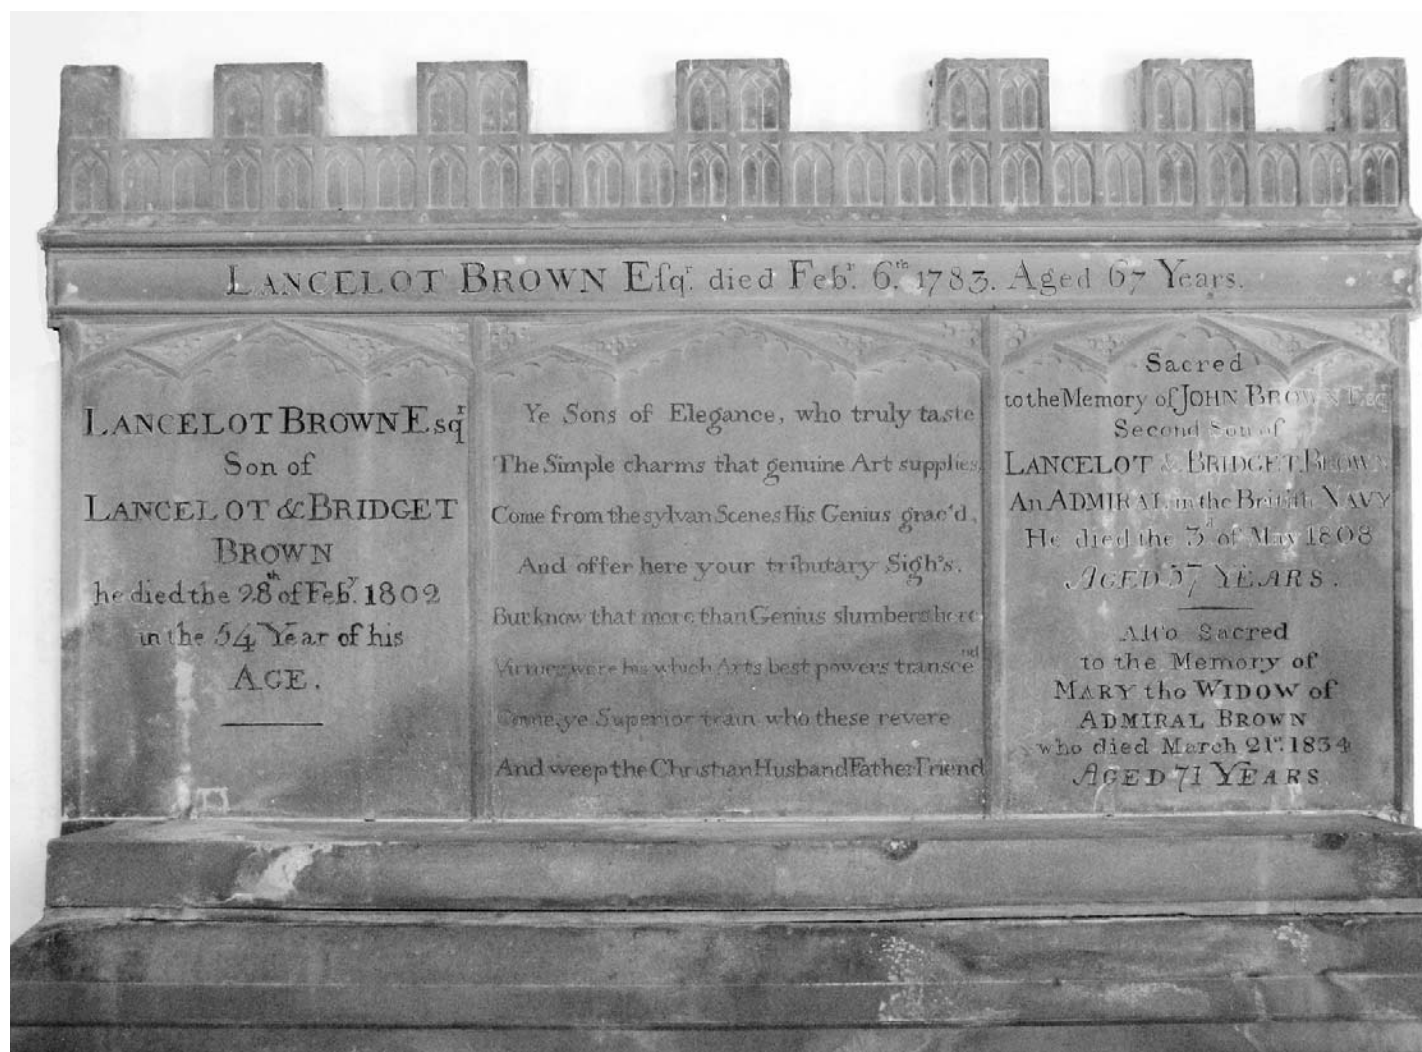 LANCELOT BROWN Esqr. died Febr. 6.th 1783. Aged 67 Years.
LANCELOT BROWN Esqr
Son of
LANCELOT & BRIDGET
BROWN
he died the 28th of Febr. 1802
in the 54 Year of his
AGE.
Ye Sons of Elegance, who truly taste
The Simple charms that genuine Art supplies,
Come from the sylvan Scenes His Genius grac'd,
And offer here your tributary Sigh's.
But know that more than Genius slumbers here
Virtues were his which Arts best powers transcend
Come, ye Superior train who these revere
And weep the Christian Husband Father Friend
Sacred
to the Memory of JOHN BROWN Esqr
Second Son of
LANCELOT & BRIDGET BROWN
An ADMIRAL in the British NAVY
He died the 3d of May 1808
AGED 57 YEARS.
Also Sacred
to the Memory of
MARY the WIDOW of
ADMIRAL BROWN
who died March 21st. 1834
AGED 71 YEARS